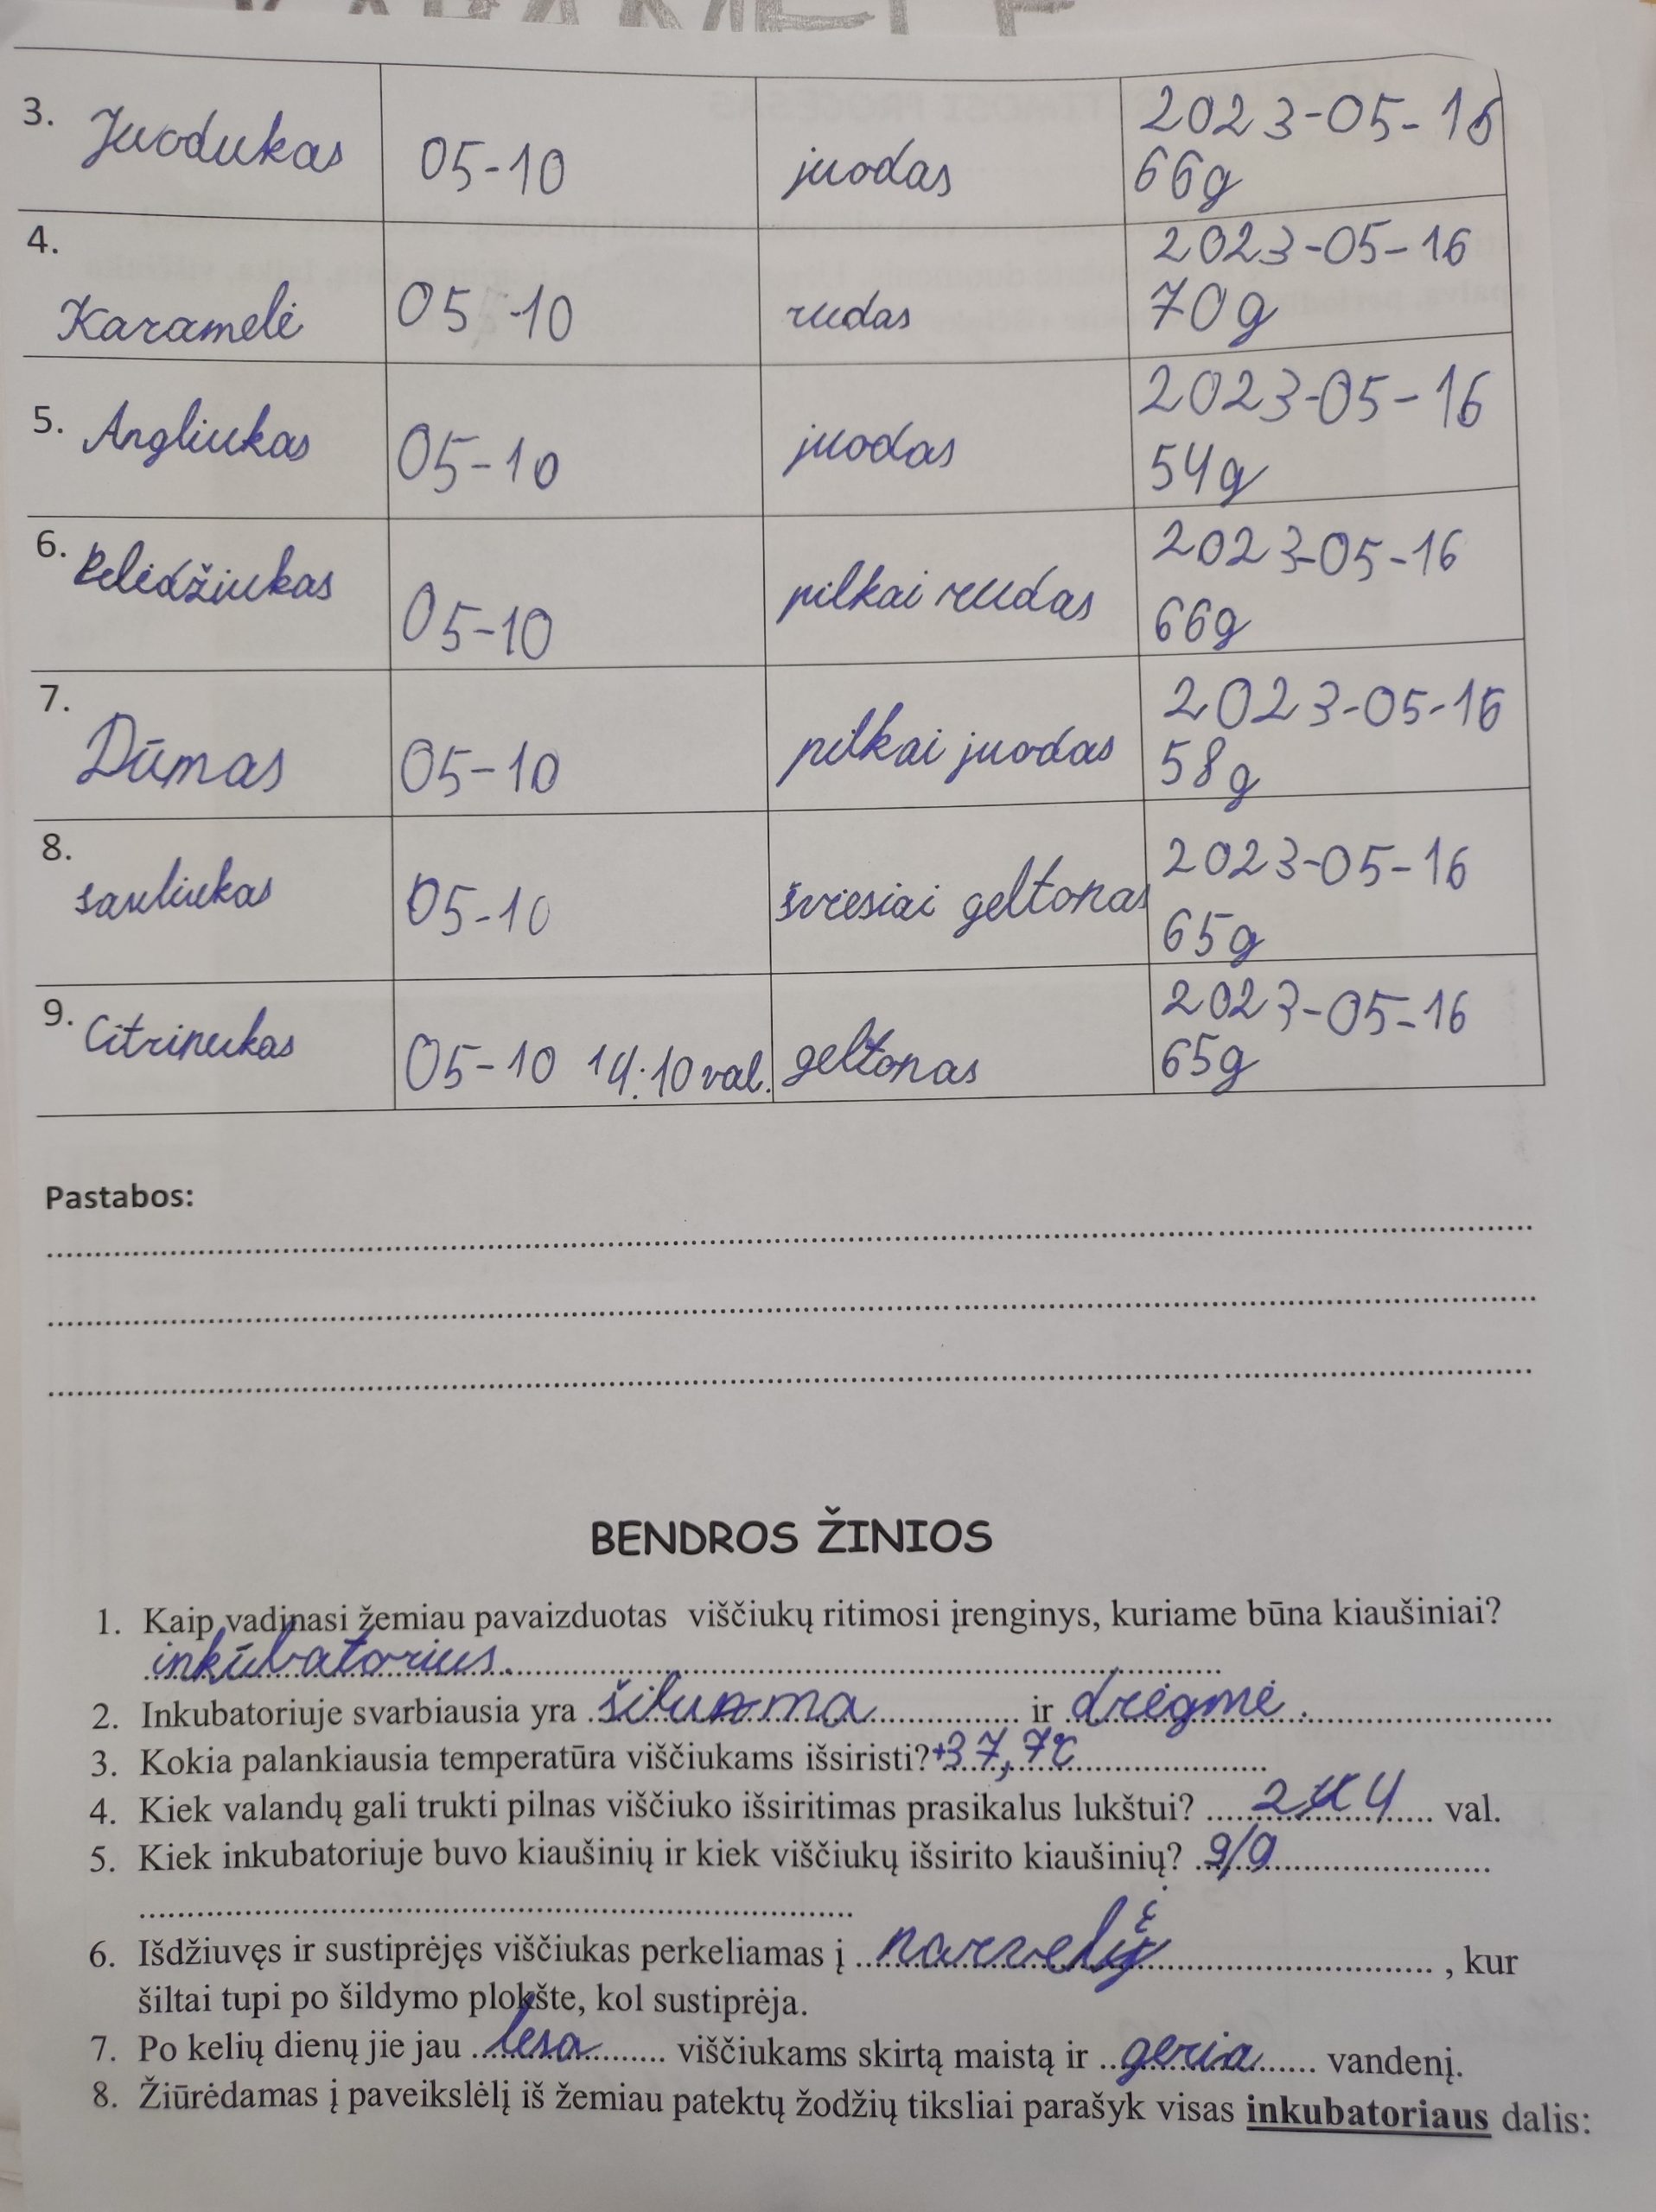 3. Juodukas 05-10 juodas 2023-05-16 66g
4. Karamelė 05-10 rudas 2023-05-16 70g
5. Angliukas 05-10 juodas 2023-05-16 54g
6. Pelėdžiukas 05-10 pilkai rudas 2023-05-16 66g
7. Dūmas 05-10 pilkai juodas 2023-05-16 58g
8. sauliukas 05-10 šviesiai geltonas 2023-05-16 65g
9. Citrinukas 05-10 14:10 val. geltonas 2023-05-16 65g
Pastabos:
BENDROS ŽINIOS
1. Kaip vadinasi žemiau pavaizduotas viščiukų ritimosi įrenginys, kuriame būna kiaušiniai?
inkūbatorius.
2. Inkubatoriuje svarbiausia yra šiluma ir drėgmė.
3. Kokia palankiausia temperatūra viščiukams išsiristi? +37,7℃
4. Kiek valandų gali trukti pilnas viščiuko išsiritimas prasikalus lukštui? 24 val.
5. Kiek inkubatoriuje buvo kiaušinių ir kiek viščiukų išsirito kiaušinių? 9/9
6. Išdžiuvęs ir sustiprėjęs viščiukas perkeliamas į narvelį , kur
šiltai tupi po šildymo plokšte, kol sustiprėja.
7. Po kelių dienų jie jau lesa viščiukams skirtą maistą ir geria vandenį.
8. Žiūrėdamas į paveikslėlį iš žemiau patektų žodžių tiksliai parašyk visas inkubatoriaus dalis: